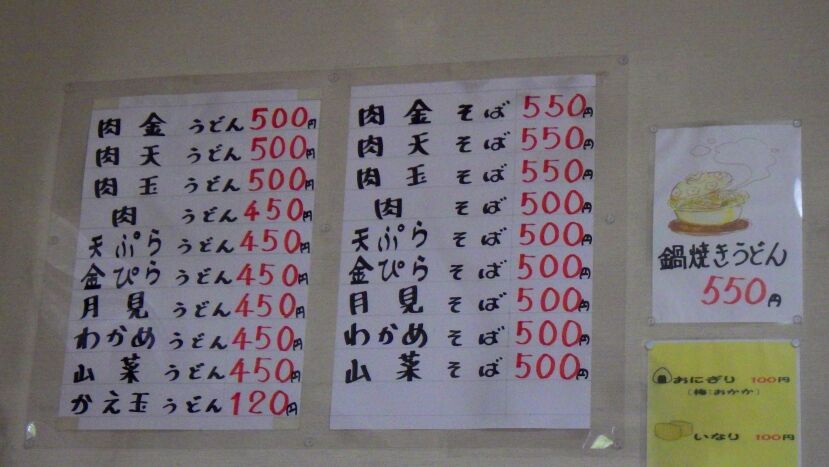 肉金うどん500円
肉天うどん500円
肉玉うどん500円
肉うどん450円
天ぷらうどん450円
金ぴらうどん450円
月見うどん450円
わかめうどん450円
山菜うどん450円
かえ玉うどん120円
肉金そば550円
肉天そば550円
肉玉そば550円
肉そば500円
天ぷらそば500円
金ぴらそば500円
月見そば500円
わかめそば500円
山菜そば500円
鍋焼きうどん
550円
おにぎり 100円
(梅:おかか)
いなり 100円